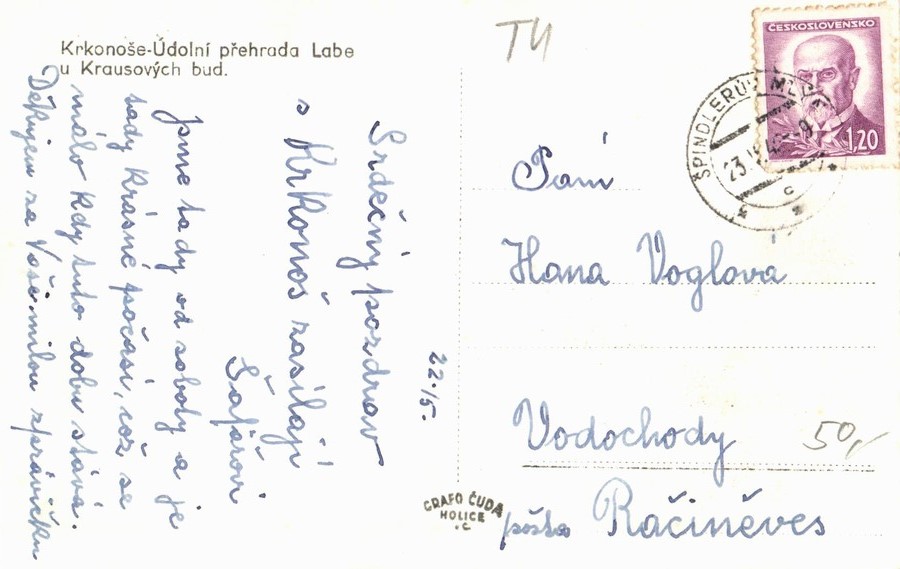 Krkonoše-Údolní přehrada Labe
u Krausových bud.
TU
ČESKOSLOVENSKO
1,20
ŠPINDLERŮV MLÝN
23.
c
22./5.
Srdečný pozdrav
s Krkonoš zasílají
Šafářovi
jsme tady od soboty a je
tady krásné počasí, což se
málo kdy tuto dobu stává.
Děkujem za Vaši milou zprávičku
Paní
Hana Voglová
Vodochody
50,-
pošta Račiněves
GRAFO ČUDA
HOLICE
.C